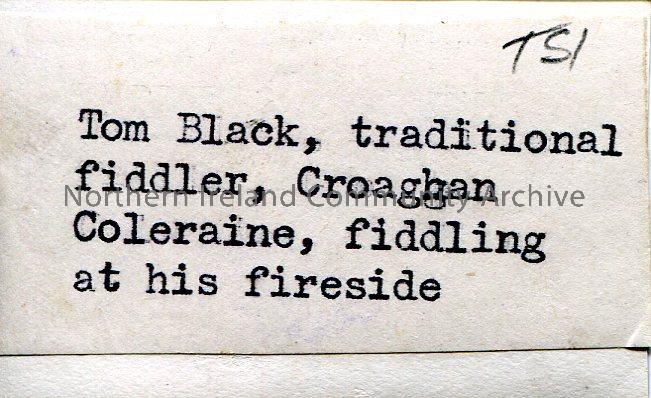 TSI
Tom Black, traditional
fiddler, Croaghan
Northern Ireland Community Archive
Coleraine, fiddling
at his fireside